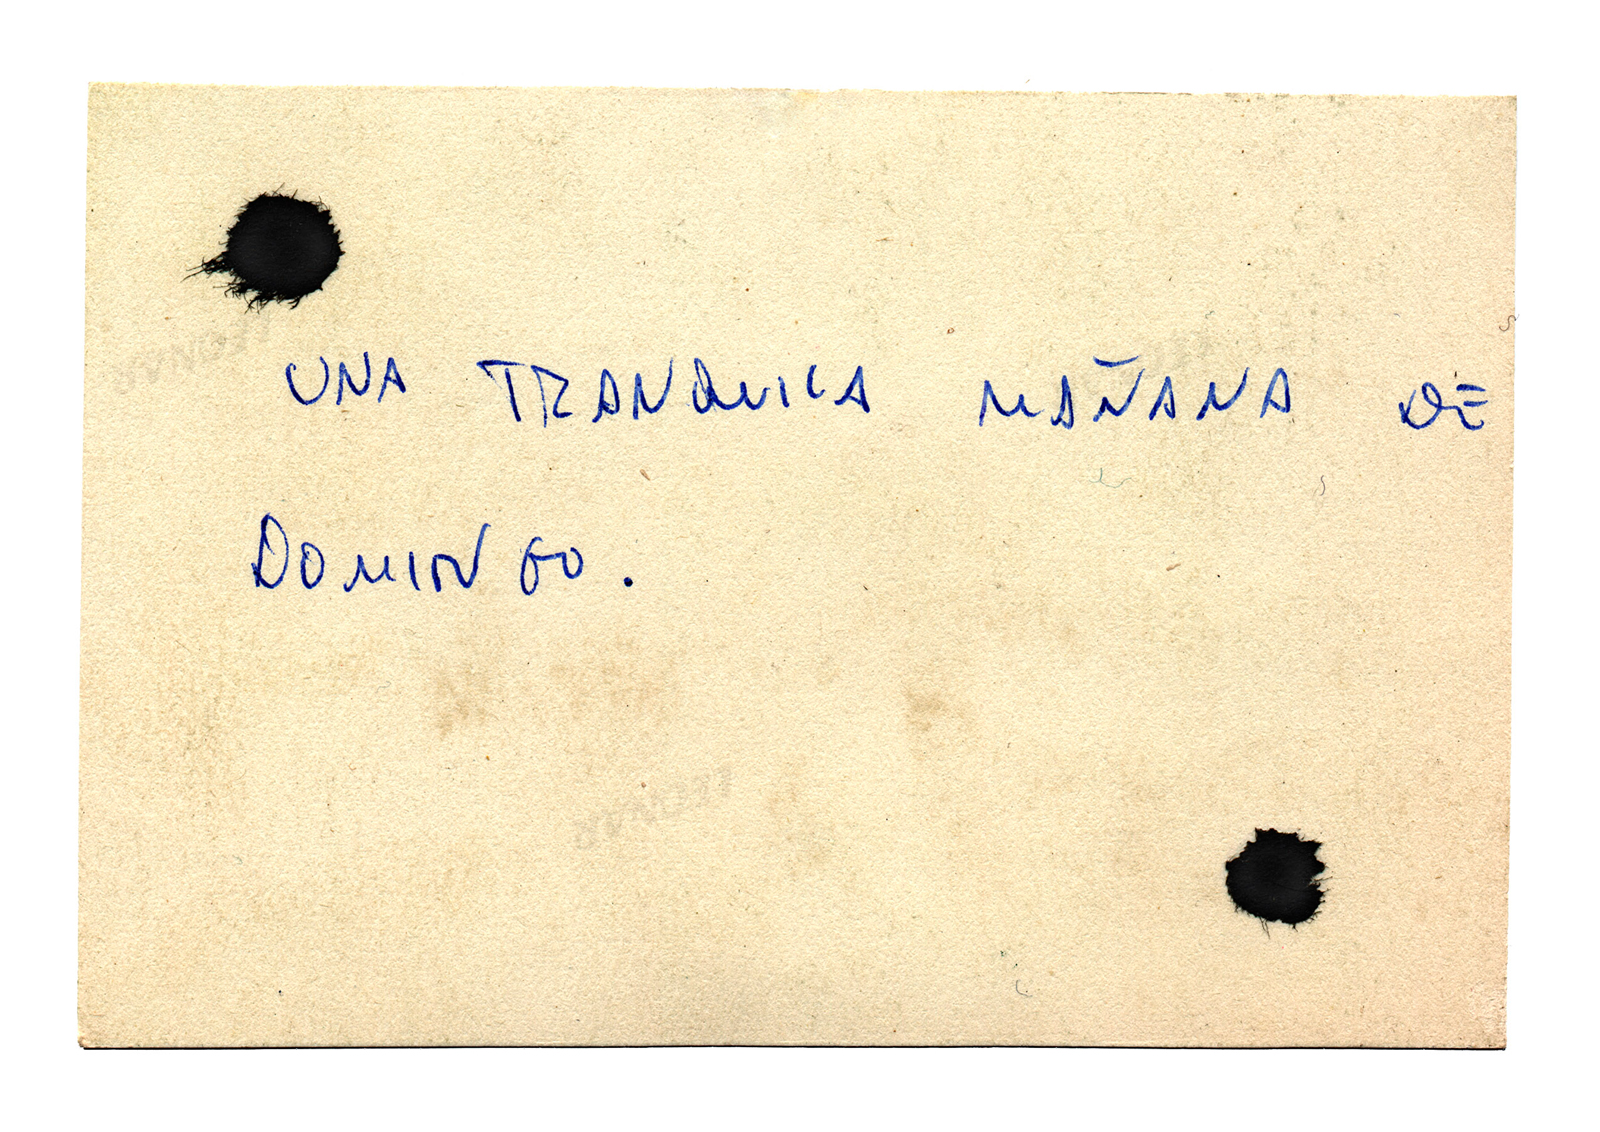 UNA TRANQUILA MAÑANA DE
DOMINGO.